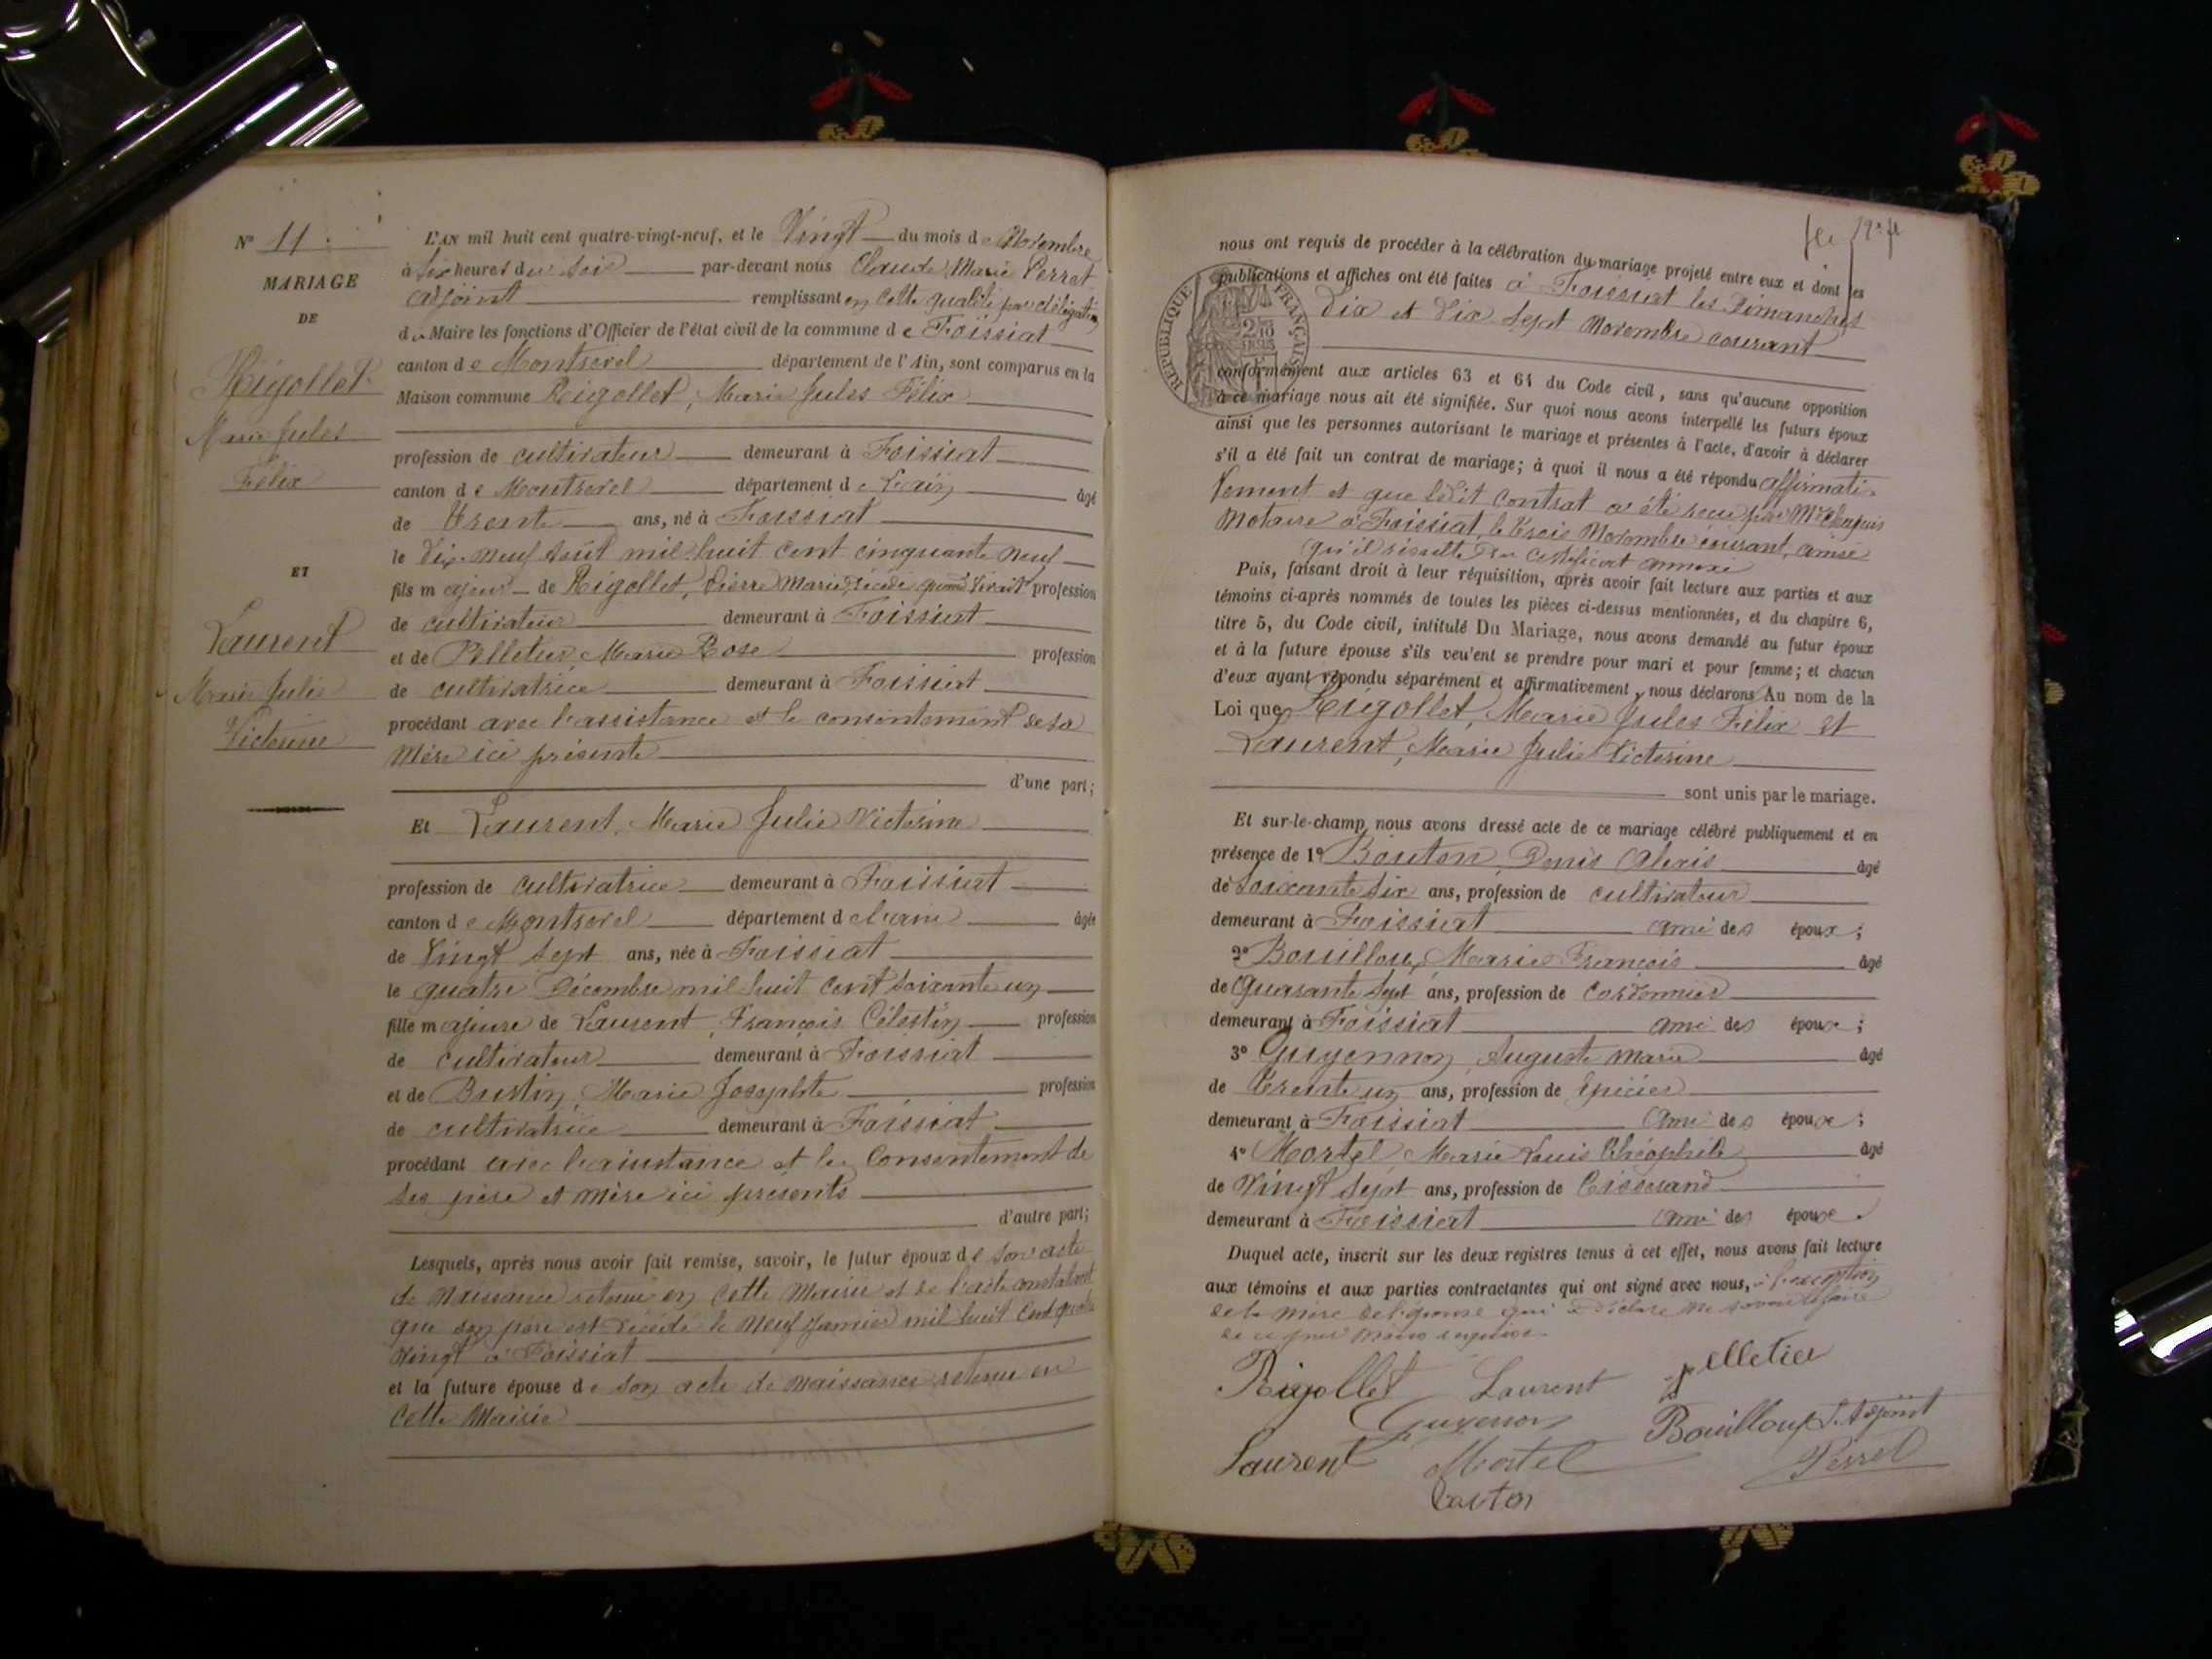 N° 11.
MARIAGE
DE
Rigollet
Marie Jules
Félix
ET
Laurent
Marie Julie
Victorine
L'AN mil huit cent quatre-vingt-neuf, et le Vingt du mois de Novembre
à six heures du soir par-devant nous Claude Marie Perret
adjoint remplissant en cette qualité par délégation
du Maire les fonctions d'Officier de l'état civil de la commune de Foissiat
canton de Montrevel département de l'Ain, sont comparus en la
Maison commune Rigollet, Marie Jules Félix
profession de cultivateur demeurant à Foissiat
canton de Montrevel département de l'ain âgé
de trente ans, né à Foissiat
le dix neuf août mil huit cent cinquante neuf
fils majeur de Rigollet, Pierre Marie, décédé quand vivait profession
de cultivateur demeurant à Foissiat
et de Pelletier, Marie Rose profession
de cultivatrice demeurant à Foissiat
procédant avec l'assistance et le consentement de sa
mère ici présente
d'une part;
Et Laurent, Marie Julie Victorine
profession de cultivatrice demeurant à Foissiat
canton de Montrevel département de l'ain âgée
de Vingt sept ans, née à Foissiat
le quatre Décembre mil huit cent soixante un
fille majeure de Laurent, François Célestin profession
de cultivateur demeurant à Foissiat
et de Bustin, Marie Josephte profession
de cultivatrice demeurant à Foissiat
procédant avec l'assistance et le Consentement de
ses père et mère ici présents
d'autre part;
Lesquels, après nous avoir fait remise, savoir, le futur époux de son acte
de naissance retenu en cette Mairie et de l'acte constatant
que son père est décédé le neuf Janvier mil huit cent quatre
Vingt à Foissiat
et la future épouse de son acte de naissance retenu en
cette Mairie
nous ont requis de procéder à la célébration du mariage projeté entre eux et dont les
publications et affiches ont été faites à Foissiat les Dimanches
dix et dix-sept Novembre courant
RÉPUBLIQUE FRANÇAISE
conformément aux articles 63 et 64 du Code civil, sans qu'aucune opposition
à ce mariage nous ait été signifiée. Sur quoi nous avons interpellé les futurs époux
ainsi que les personnes autorisant le mariage et présentes à l'acte, d'avoir à déclarer
s'il a été fait un contrat de mariage; à quoi il nous a été répondu affirmati-
vement et que ledit contrat a été reçu par Me Chapuis
Notaire à Foissiat, le trois Novembre courant, ainsi
qu'il résulte du certificat annexé
Puis, faisant droit à leur réquisition, après avoir fait lecture aux parties et aux
témoins ci-après nommés de toutes les pièces ci-dessus mentionnées, et du chapitre 6,
titre 5, du Code civil, intitulé Du Mariage, nous avons demandé au futur époux
et à la future épouse s'ils veulent se prendre pour mari et pour femme; et chacun
d'eux ayant répondu séparément et affirmativement, nous déclarons Au nom de la
Loi que Rigollet, Marie Jules Félix et
Laurent, Marie Julie Victorine
sont unis par le mariage.
Et sur-le-champ nous avons dressé acte de ce mariage célébré publiquement et en
présence de 1° Bouton, Denis Alexis âgé
de soixante six ans, profession de cultivateur
demeurant à Foissiat ami des époux;
2° Bouilloux, Marie François âgé
de Quarante sept ans, profession de Cordonnier
demeurant à Foissiat ami des époux;
3° Guyennon, Auguste Marie âgé
de trente un ans, profession de épicier
demeurant à Foissiat ami des époux;
4° Mortel Marie Louis Théophile âgé
de Vingt sept ans, profession de tisserand
demeurant à Foissiat ami des époux.
Duquel acte, inscrit sur les deux registres tenus à cet effet, nous avons fait lecture
aux témoins et aux parties contractantes qui ont signé avec nous, à l'exception
de la mère de l'épouse qui a déclaré ne savoir le faire
de ce par nous enquise.
Rigollet Laurent pelletier
Guyennon Bouilloux L'Adjoint
Laurent Mortel Perret